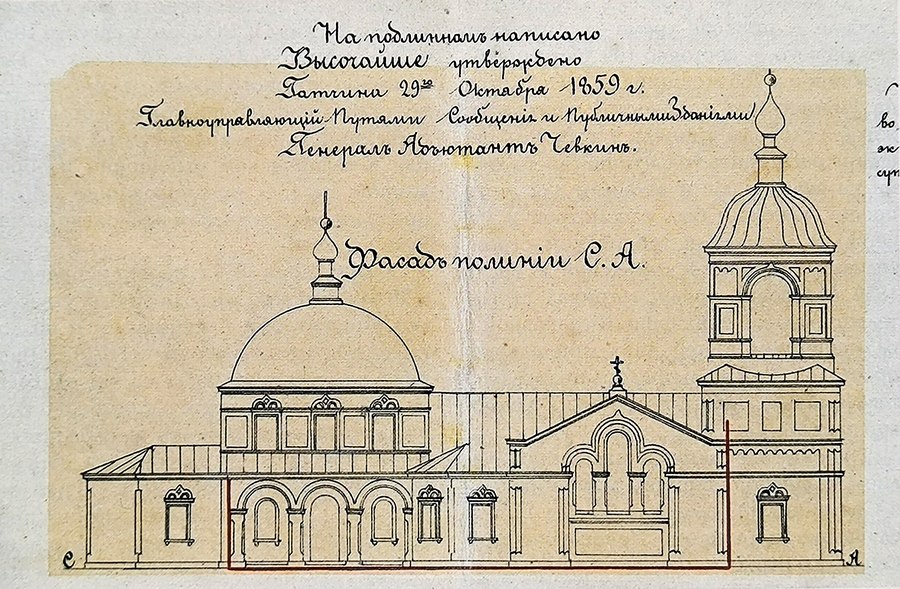 На подлинномъ написано
Высочайше утверждено
Гатчина 29го Октября 1859 г.
Главноуправляющiй Путями Сообщенiя и Публичными Зданiями
Генералъ Адъютантъ Чевкинъ.
Фасадъ по линiи С. А.
во
эк
суп
С
А